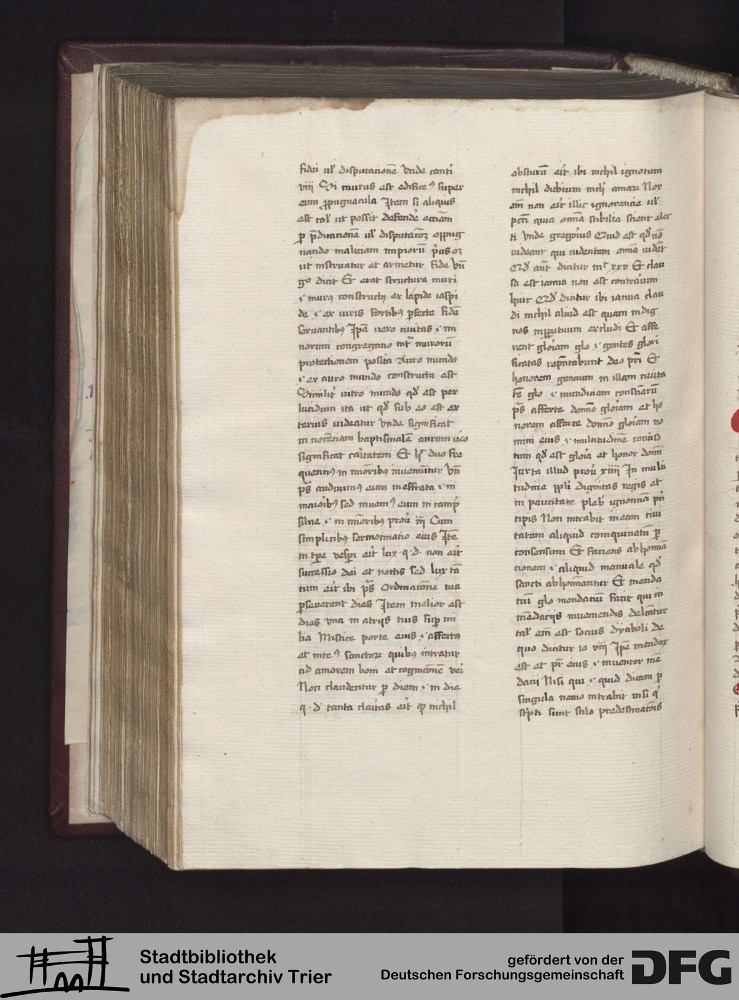 fidei vl' disputacione Vnde canti
viii Si murus est edifice⁹ super
eum ꝓpugnacula Item si aliquis
est tal' ut possit defende' etiam
ꝑ p̄dicacionē ul' disputacōʒ oppug
nando maliciam impiorū
ut instruatur et armetur fide
dicit Et erat structura muri
i murꝰ constructꝰ ex lapide iaspi
de i ex viris fortibꝫ ꝑfecte fidē
seruantibꝫ Ipā uero ciuitas i
norum congregatio murorū
protectionem posita Auro mundo
i ex auro mundo constructa est
Similis vitro mundo qd' est per
lucidum ita ut qd' sub eo est ex
terius uideatur vnde significat
innocenciam baptismalē aurum ūo
significat caritatem Et duo fre
quenter in inuenimuntur Vn̄
p̄s audiuimꝰ eum in effrata i in
sed inuenimꝰ eum in campꝭ
silue i in prou iii Cum
simplicibꝫ sermocinatio eius Itē
in tꝑe vesꝑi erit lux q d non erit
successio diei et noctis sed lux tā
tum erit ibi p̄s Ordinacione tua
ꝑseuerant dies Item melior est
dies vna in atrijs tuis suꝑ mi
lia Mistice porte eius i affectꝰ
et sanctorum quibꝫ intratur
ad amorem boni et cognicionē veri
Non claudentur ꝑ diem i in die
q d tanta claritas erit ꝙ nichil
obscurū erit ibi nichil ignotum
nichil dubium Nox
em̄ non erit illic ignorancie ul'
pccī quia omnia scibilia scient elec
ti vnde gregorius Quid est qd' nō
uideant qui uidentem omnia uidēt
Qd' aut dicitur mt xxv Et clau
sa est ianua non est contrarium
huic Qd' dicitur ibi ianua clau
di nichil aliud est quam indig
nos inperpetuum excludi Et affe
rent gloriam glo i gentes glori
ficatas rep̄ntabunt deo pri Et
honorem gencium in illam ciuita
tē glo i mundiciam conscienciarū
p̄s afferte domino gloriam et ho
norem afferte domino gloriam no
mini eius i multitudinē
qd' est gloria et honor domini
Iuxta illud prou xiiii In multi
tudine ppli dignitas regis et
in paucitate plebis ignominia prin
cipis Non intrabit in eam ciui
tatem aliquid coinquinatū ꝑ
consensum Et faciens abhomina
cionem i aliquid manuale qd'
sancti abhominantur Et menda
ciū glo mendacium facit qui in
mendacijs inueniendis delectatur
tal' em̄ est socius dyaboli de
quo dicitur io viii Ipse mendax
est et pr̄ eius i inuentor mē
dacii Nisi qui i quid dicam ꝑ
singula nemo intrabit nisi q'
scripti sunt stilo predestinacōnis
Stadtbibliothek
und Stadtarchiv Trier
gefördert von der
Deutschen Forschungsgemeinschaft
DFG